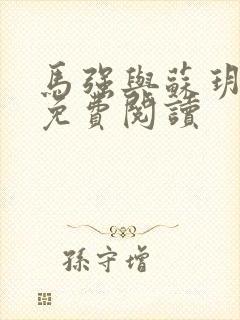 馬強與蘇玥
免費閱讀
孫守增